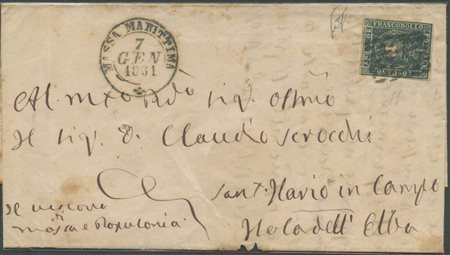 MASSA MARITTIMA
7
GEN
1861
FRANCOBOLLO
Al m.to Rdo Sigr
Il Sigr D. Claudio Scrocchi
Sant Ilario in Campo
Isola dell' Elba
Il vescovo
di
Massa e Populonia